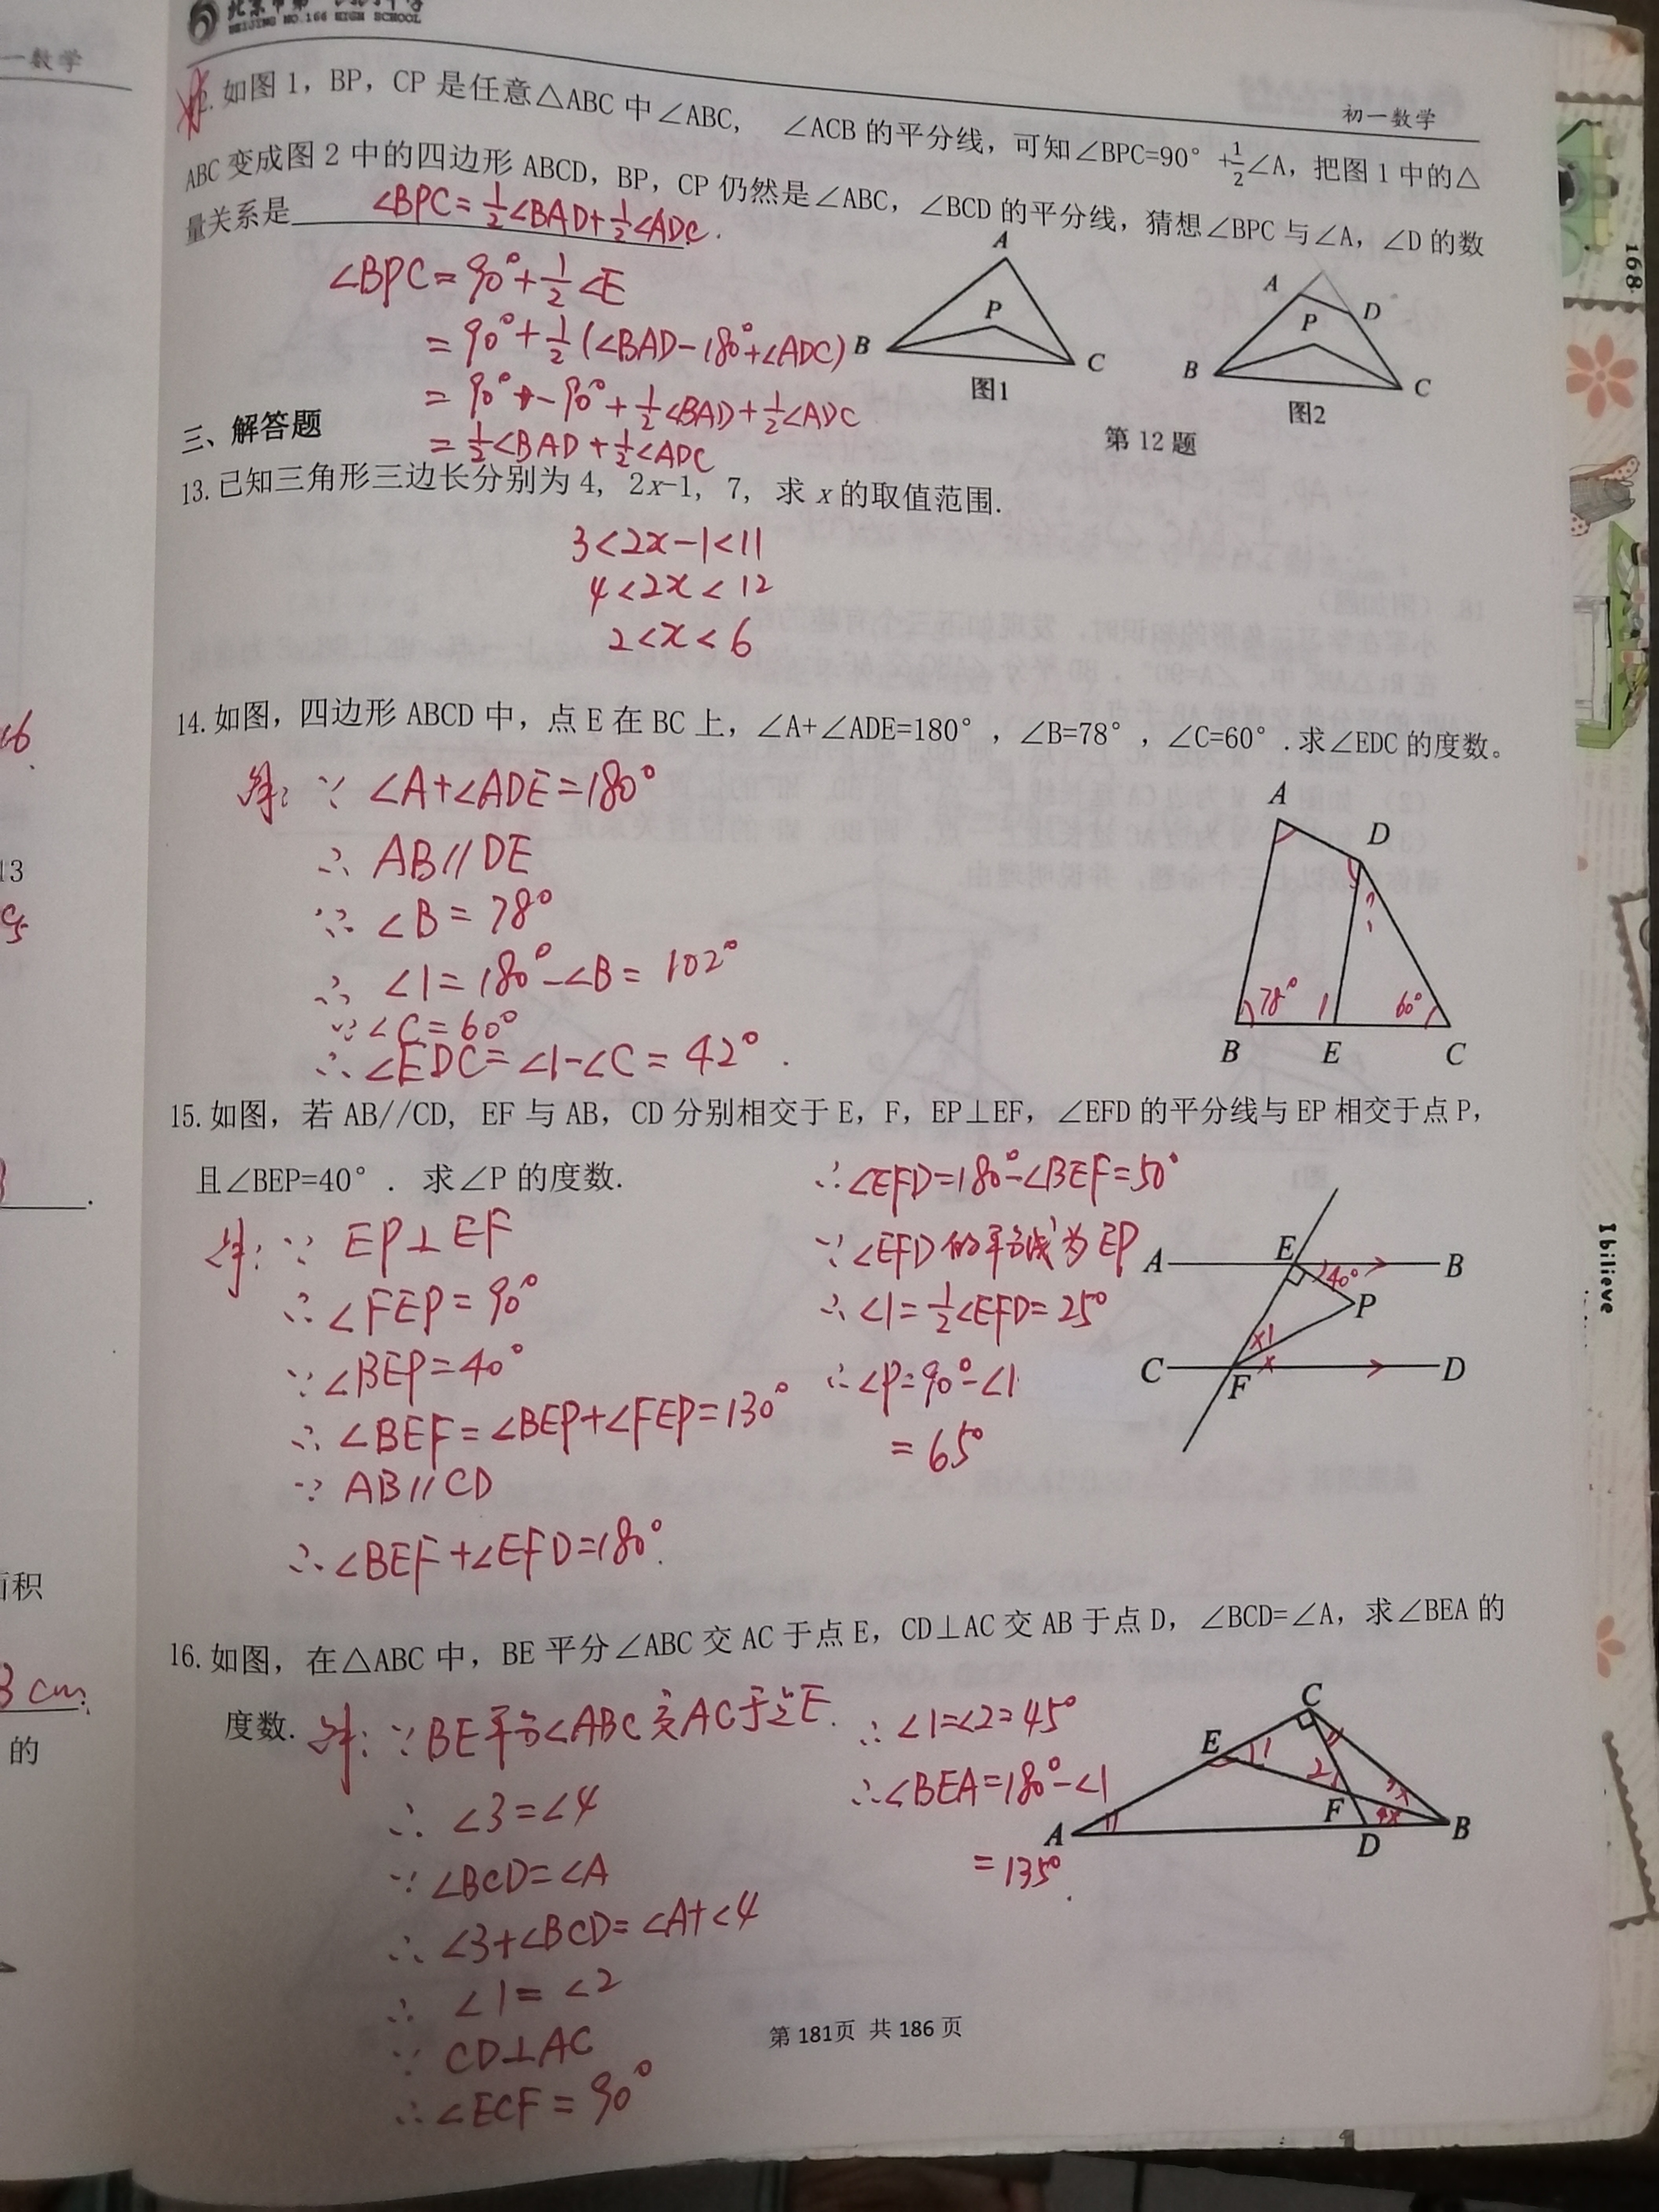 BEIJING NO.166 HIGH SCHOOL
一数学
初一数学
12.如图1，BP，CP是任意△ABC中∠ABC，∠ACB的平分线，可知∠BPC=90°+1/2∠A，把图1中的△
ABC变成图2中的四边形ABCD，BP，CP仍然是∠ABC，∠BCD的平分线，猜想∠BPC与∠A，∠D的数
量关系是 ∠BPC=1/2∠BAD+1/2∠ADC.
∠BPC=90°+1/2∠E
=90°+1/2(∠BAD-180°+∠ADC)
=90°-90°+1/2∠BAD+1/2∠ADC
=1/2∠BAD+1/2∠ADC
A
P
B
C
图1
A
D
P
B
C
图2
第12题
三、解答题
13.已知三角形三边长分别为4, 2x-1, 7, 求x的取值范围.
3<2x-1<11
4<2x<12
2<x<6
14.如图，四边形ABCD中，点E在BC上，∠A+∠ADE=180°，∠B=78°，∠C=60°.求∠EDC的度数。
解：∵ ∠A+∠ADE=180°
∴ AB∥DE
∵ ∠B=78°
∴ ∠1=180°-∠B=102°
∵ ∠C=60°
∴ ∠EDC=∠1-∠C=42°.
A
D
?
78° 1 60°
B E C
15.如图，若AB//CD, EF与AB，CD分别相交于E，F，EP⊥EF，∠EFD的平分线与EP相交于点P，
且∠BEP=40°. 求∠P的度数.
解：∵ EP⊥EF
∴ ∠FEP=90°
∵ ∠BEP=40°
∴ ∠BEF=∠BEP+∠FEP=130°
∵ AB∥CD
∴ ∠BEF+∠EFD=180°.
∴ ∠EFD=180°-∠BEF=50°
∵ ∠EFD的平分线为EP
∴ ∠1=1/2∠EFD=25°
∴ ∠P=90°-∠1
=65°
A E B
40°
P
×1
×
C F D
16.如图，在△ABC中，BE平分∠ABC交AC于点E，CD⊥AC交AB于点D，∠BCD=∠A，求∠BEA的
度数.
解：∵ BE平分∠ABC交AC于点E.
∴ ∠3=∠4
∵ ∠BCD=∠A
∴ ∠3+∠BCD=∠A+∠4
∴ ∠1=∠2
∵ CD⊥AC
∴ ∠ECF=90°
∴ ∠1=∠2=45°
∴ ∠BEA=180°-∠1
=135°.
C
E 1
2 3
F 4
A D B
第181页 共186页
13
3 cm.
的
168
I bilieve